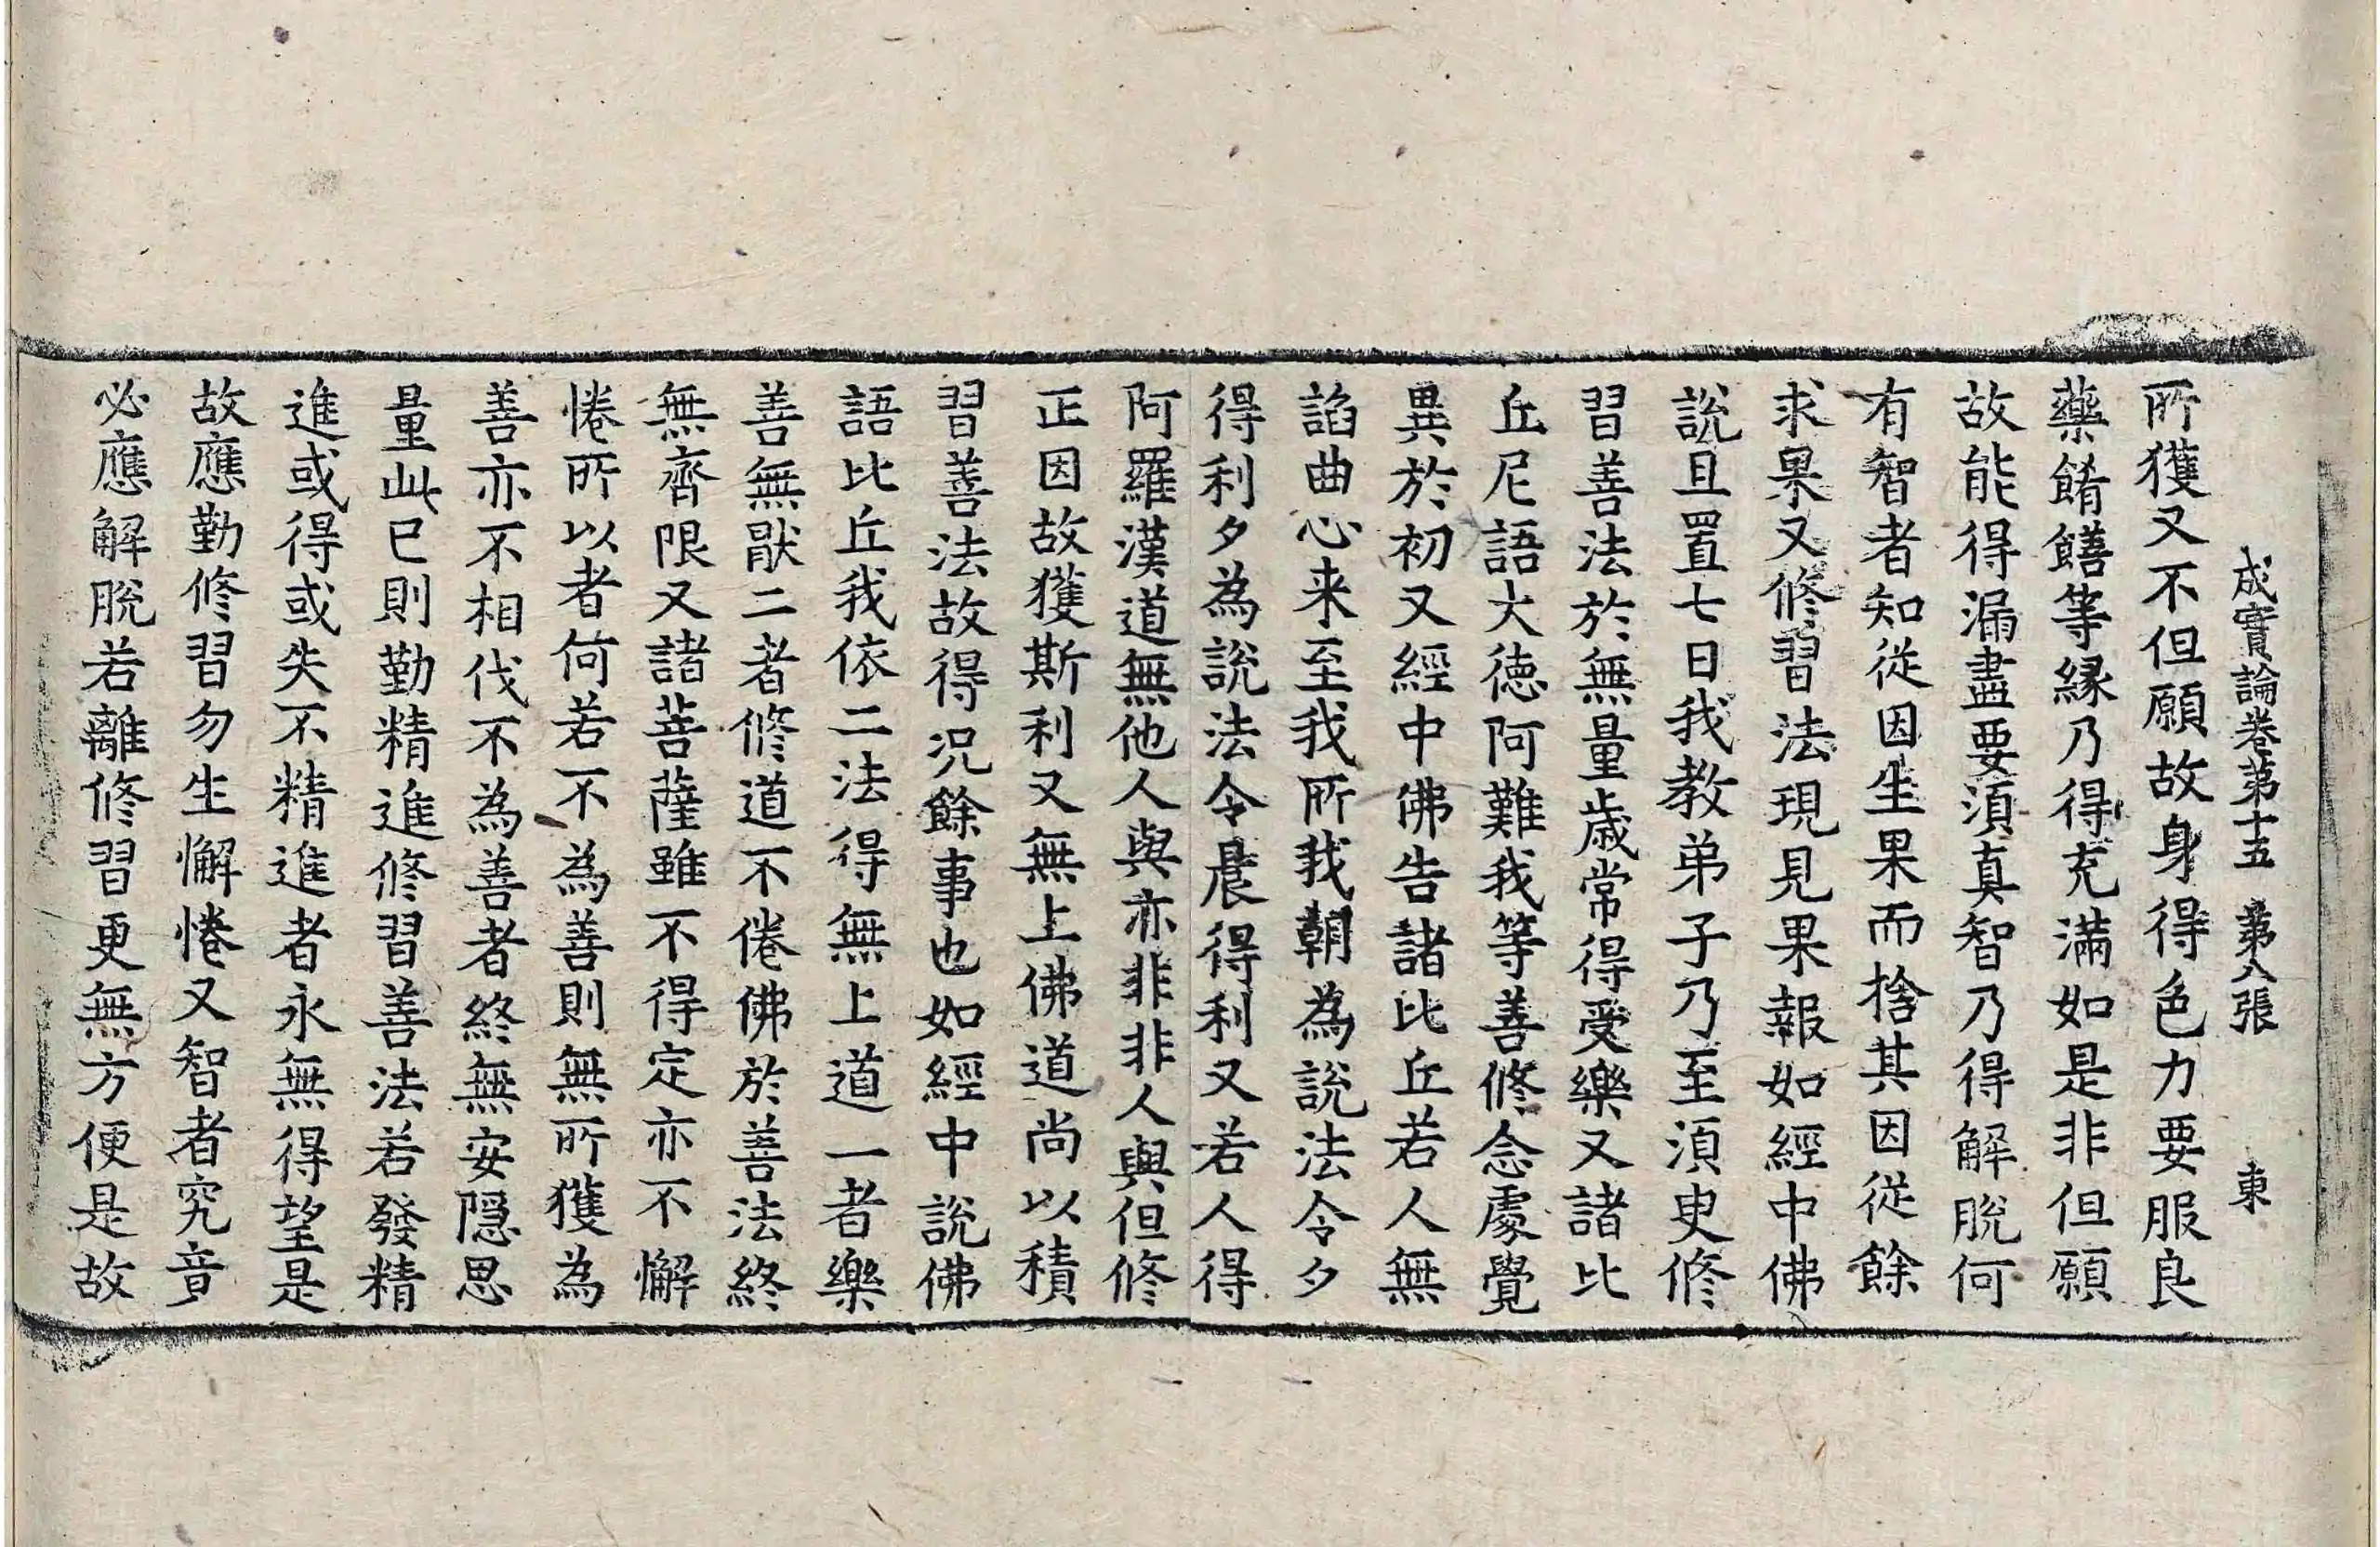 成實論卷第十五 第八張 東
所獲又不但願故身得色力要服良
藥餚饍等縁乃得充滿如是非但願
故能得漏盡要湏真智乃得解脫何
有智者知從因生果而捨其因從餘
求果又修習法現見果報如經中佛
說且置七日我教弟子乃至湏臾修
習善法於無量歲常得受樂又諸比
丘尼語大徳阿難我等善修念處覺
異於初又經中佛告諸比丘若人無
諂曲心来至我所我朝為說法令夕
得利夕為說法令晨得利又若人得
阿羅漢道無他人與亦非非人與但修
正因故獲斯利又無上佛道尚以積
習善法故得況餘事也如經中說佛
語比丘我依二法得無上道一者樂
善無猒二者修道不倦佛於善法終
無齊限又諸菩薩雖不得定亦不懈
惓所以者何若不為善則無所獲為
善亦不相伐不為善者終無安隠思
量此已則勤精進修習善法若發精
進或得或失不精進者永無得望是
故應勤修習勿生懈惓又智者究竟
必應解脫若離修習更無方便是故